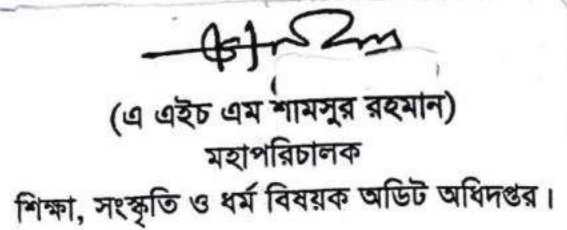 (এ এইচ এম শামসুর রহমান)
মহাপরিচালক
শিক্ষা, সংস্কৃতি ও ধর্ম বিষয়ক অডিট অধিদপ্তর।